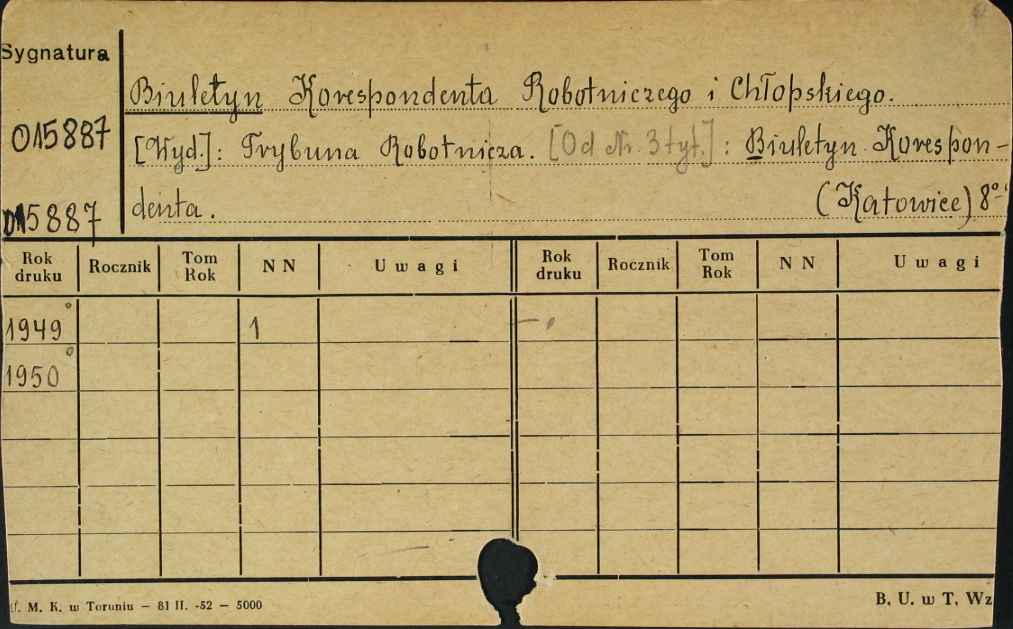 Sygnatura
Biuletyn Korespondenta Robotniczego i Chłopskiego.
015887
[Wyd.]: Trybuna Robotnicza. [Od Nr. 3 tyt.]: Biuletyn Korespon-
015887
denta. (Katowice) 8°
Rok druku Rocznik Tom Rok N N Uwagi Rok druku Rocznik Tom Rok N N Uwagi
1949 1
1950
M. K. w Toruniu — 81 II. -52 — 5000
B. U. w T. Wz